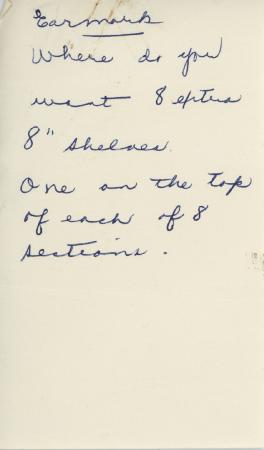 Earmark
Where do you
want 8 extra
8" shelves.
One on the top
of each of 8
sections.